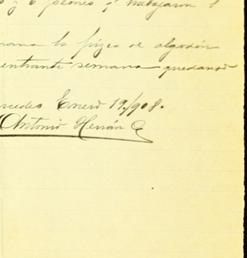 y 6 peones q trabajaron
la pizca de algodón
entrante semana quedando
Enero 19/908.
Antonio Herrán